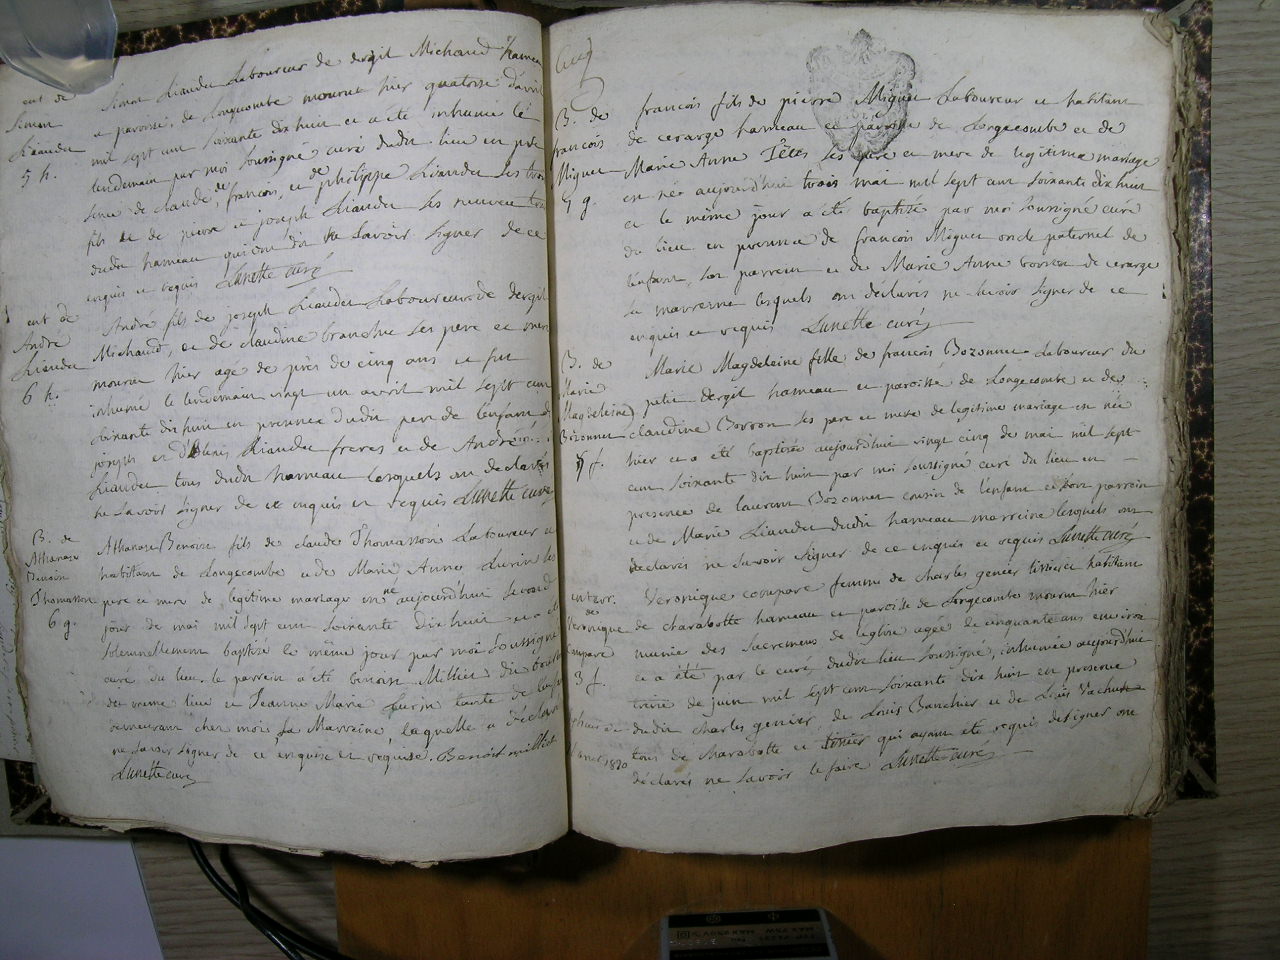 ent de
Simon
Liaudet
5 h.
Simon Liaudet Laboureur de dergil Michaud hameau
et paroisse de Longecombe mourut hier quatorze d'avril
mil sept cent soixante dix huit et a été inhumé le
lendemain par moi soussigné curé dudit lieu en pré
sence de claude, de francois, et de philippe Liaudet ses trois
fils et de pierre et joseph Liaudet ses neveux tous
dudit hameau qui ont dit ne savoir signer de ce
enquis et requis Lunette curé
ent de
André
Liaudet
6 h.
André fils de joseph Liaudet Laboureur de dergil
Michaud, et de claudine branche ses pere et mere
mourut hier agé de près de cinq ans et fut
inhumé le lendemain vingt un avril mil sept cent
soixante dix huit en presence dudit pere de l'enfant
joseph et d' Liaudet freres et de André
Liaudet tous dudit hameau lesquels ont declarés
ne savoir signer de ce enquis et requis Lunette curé
B. de
Athanase
Benoise
Thomasson
6 g.
Athanase Benoise fils de claude Thomasson Laboureur et
habitant de Longecombe et de Marie Anne Lurin ses
pere et mere de legitime mariage est né aujourd'hui second
jour de mai mil sept cent soixante dix huit et a été
solemnellement baptisé le même jour par moi soussigné
curé du lieu. le parrein a été benoise Millet
du même lieu et Jeanne Marie Lurin tante de l'enfant
demeurant chez moi sa Marreine laquelle a déclaré
ne savoir signer de ce enquise et requise. Benoist millet
Lunette curé
B. de
francois
Miguet
7 g.
francois fils de pierre Miguet Laboureur et habitant
de cerarge hameau et paroisse de Longecombe et de
Marie Anne Têtes ses pere et mere de legitime mariage
est né aujourd'hui trois mai mil sept cent soixante dix huit
et le même jour a été baptisé par moi soussigné curé
du lieu en presence de francois Miguet oncle paternel de
l'enfant, son parrein et de Marie Anne borron de cerarge
sa marreine lesquels ont déclarés ne savoir signer de ce
enquis et requis Lunette curé
B. de
Marie
Magdeleine
Bozonnet
f.
Marie Magdeleine fille de francois Bozonnet Laboureur du
petit dergil hameau et paroisse de Longecombe et de
claudine Borron ses pere et mere de legitime mariage est née
hier et a été baptisée aujourd'hui vingt cinq de mai mil sept
cent soixante dix huit par moi soussigné curé du lieu en
presence de laurent Bozonnet cousin de l'enfant et son parrein
et de Marie Liaudet dudit hameau marreine lesquels ont
declarés ne savoir signer de ce enquis et requis Lunette curé
enterr.
de
Veronique
Compare
3 f.
Veronique compare femme de charles genier tissier habitant
de charabotte hameau et paroisse de Longecombe mourut hier
munie des sacremens de leglise agée de cinquante ans environ
et a été par le curé dudit lieu soussigné, inhumée aujourd'hui
treize de juin mil sept cent soixante dix huit en presence
dudit charles genier, de Louis Banchier et de Louis
tous de charabotte et tissier qui ayant été requis de signer ont
déclarés ne savoir le faire Lunette curé